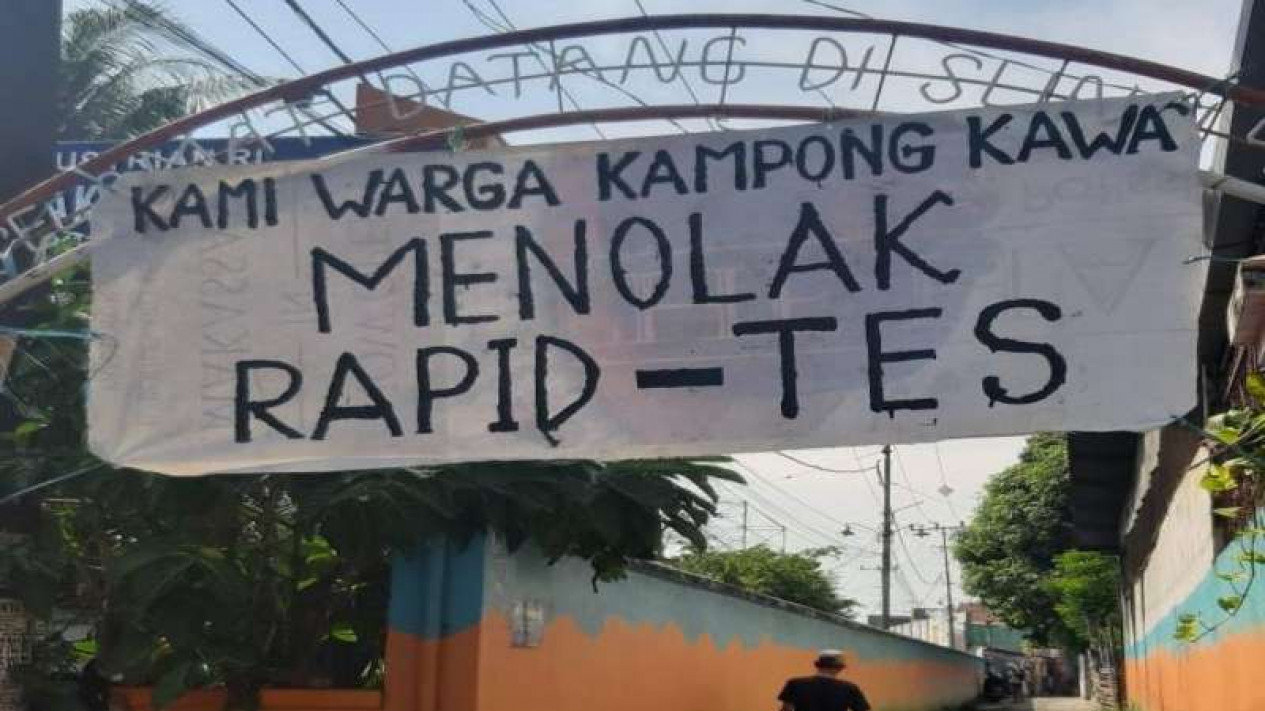 DATANG DI
KAMI WARGA KAMPONG KAWA
MENOLAK
RAPID-TES